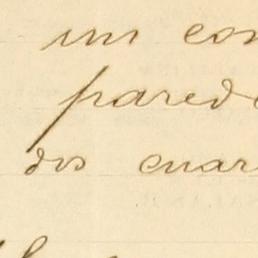 un con
pared
dos cuar